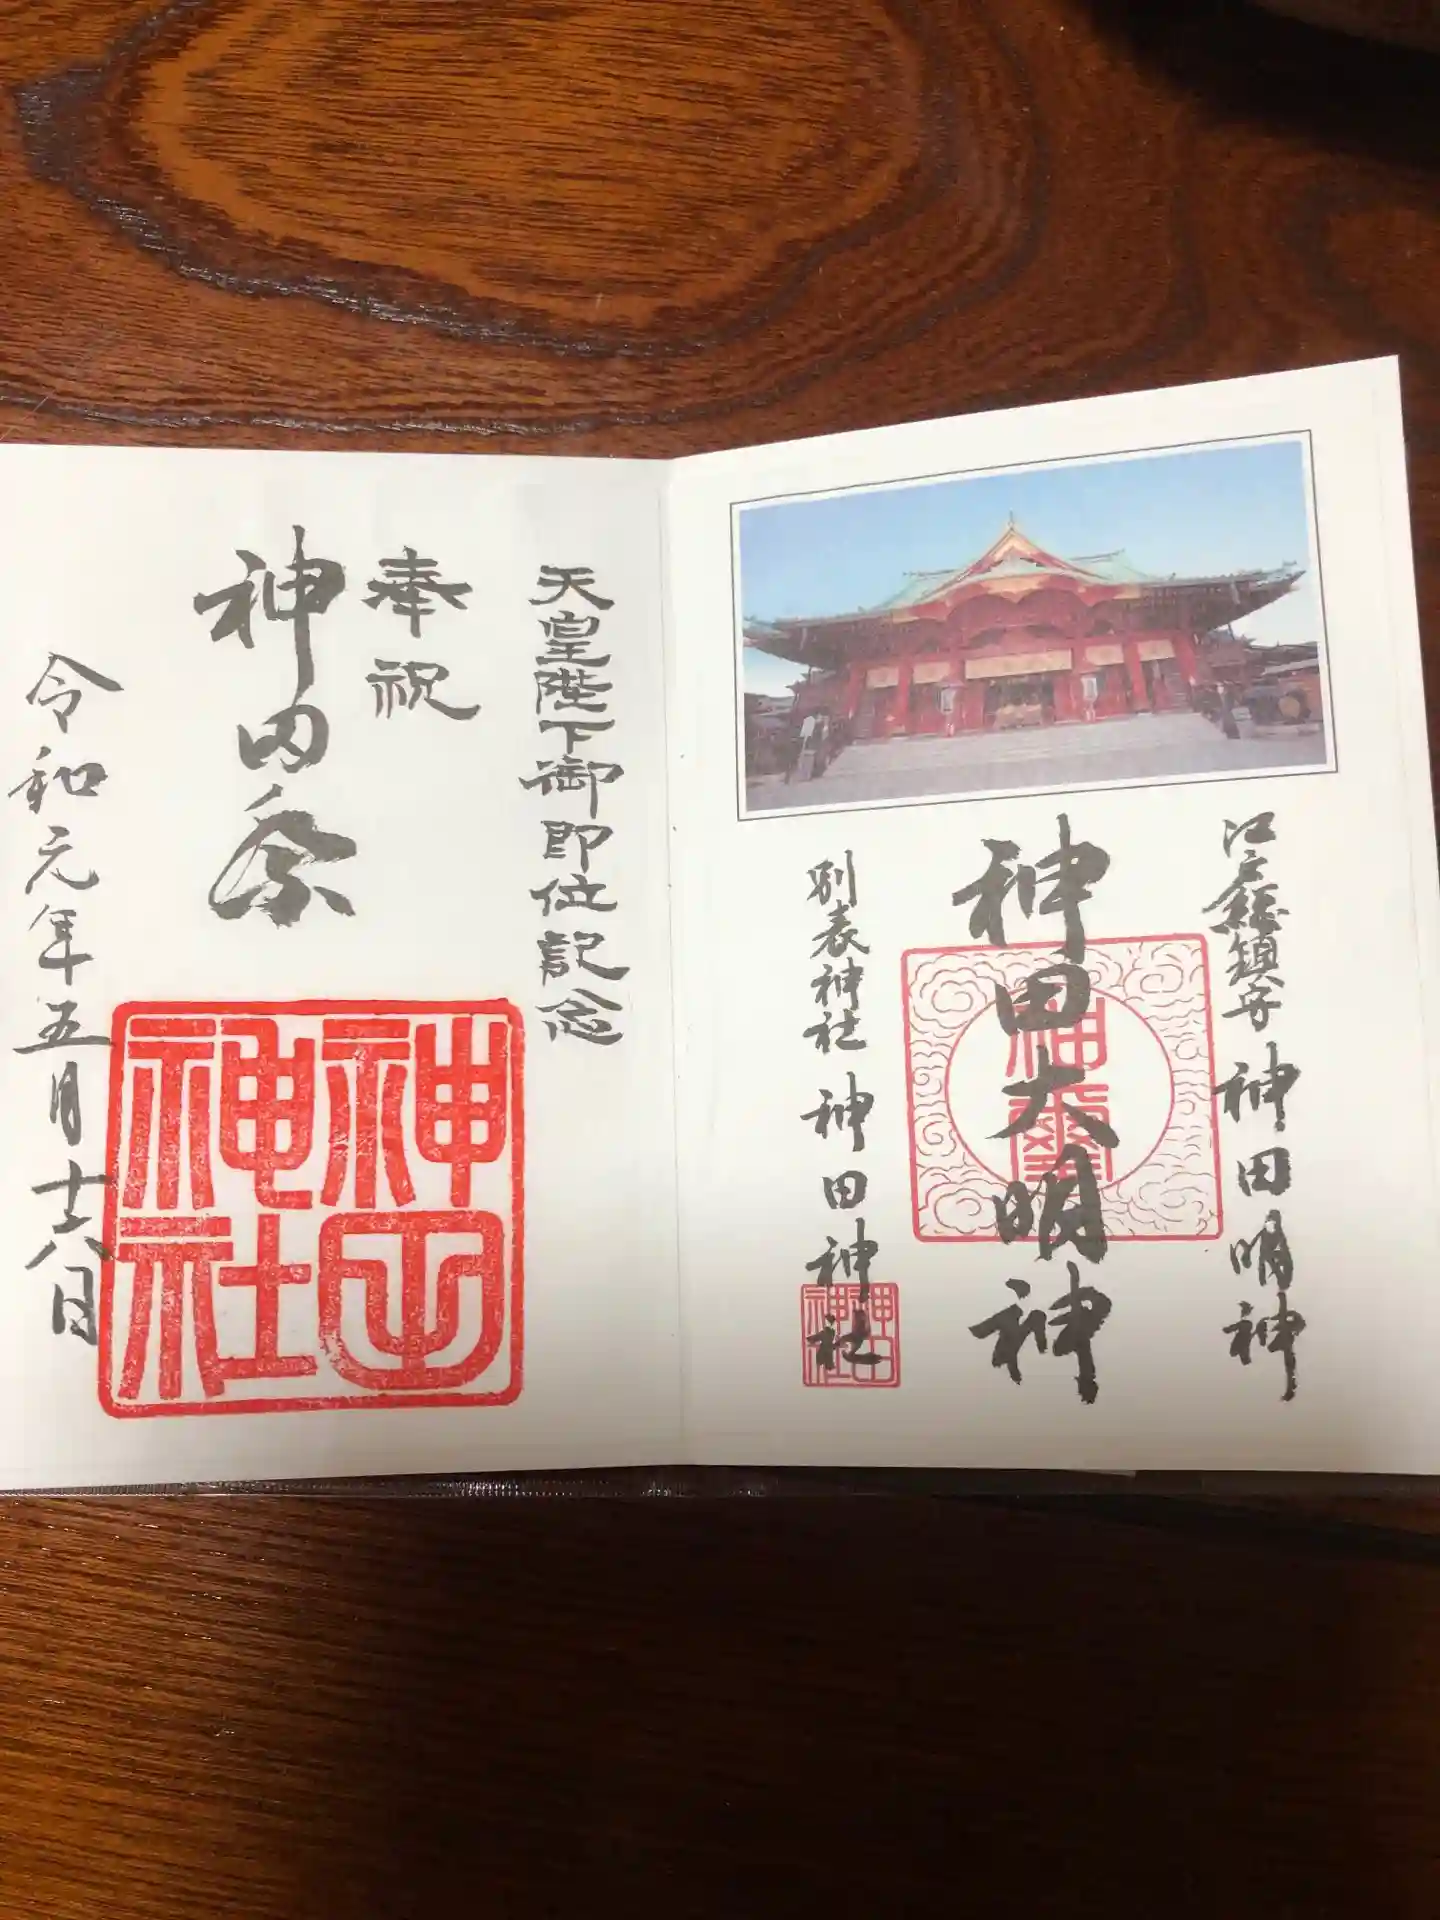 江戸総鎮守 神田明神
神田大明神
神璽
別表神社 神田神社
神田神社
天皇陛下御即位記念
奉祝
神田祭
令和元年五月十六日
神田神社